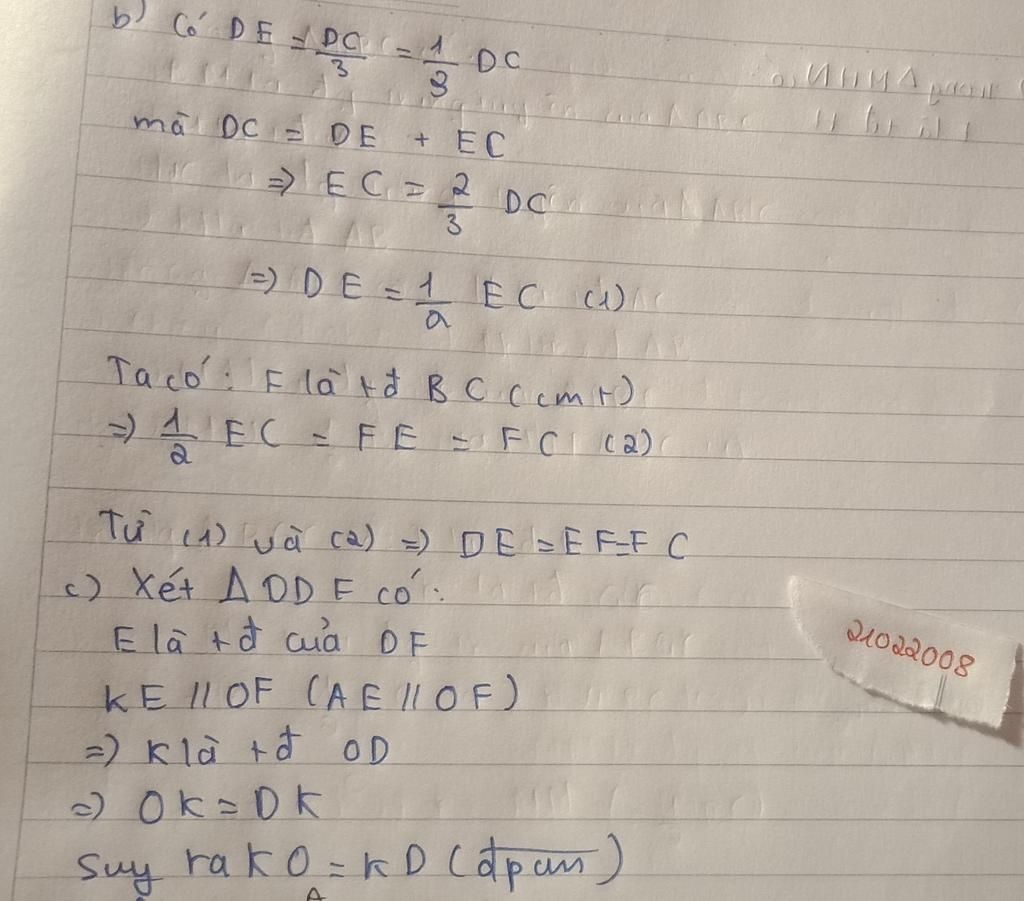 b) Có DE = DC/3 = 1/3 DC
mà DC = DE + EC
=> EC = 2/3 DC
=> DE = 1/2 EC (1)
Ta có: F là tđ BC (cmt)
=> 1/2 EC = FE = FC (2)
Từ (1) và (2) => DE = EF = FC
c) Xét Δ ODF có:
E là tđ của DF
KE // OF (AE // OF)
=> K là tđ OD
=> OK = DK
Suy ra KO = KD (đpcm)
21022008
A